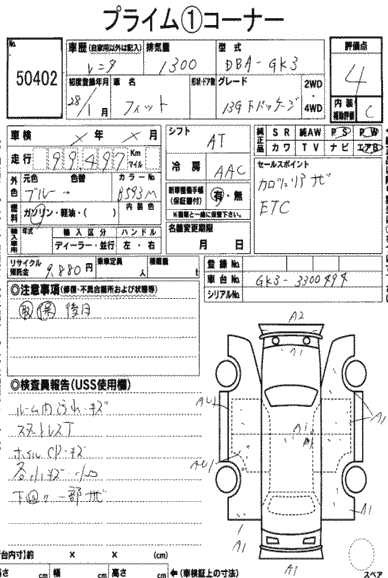 プライム①コーナー
No.
50402
車歴(自家用以外は記入) 排気量 型式
レンタ 1300 DBA-GK3
初度登録年月 車名 形状・ドア数 グレード 2WD
28/1月 フィット 13G Fパッケージ 4WD
評価点
4
内装
補助評価 C
車検 × 年 × 月
走行 99,497 Km
マイル
外色 元色 色替 カラーNo.
ブルー → B593M
燃料 ガソリン・軽油・( ) 内装色
輸入車用 年式 輸入区分 ハンドル
ディーラー・並行 左・右
シフト AT
冷房 AAC
新車整備手帳
(保証書付) 有・無
※書類と一緒に保管下さい。
名義変更期限
月 日
純正品 SR 純AW PS PW
カワ TV ナビ エアB
セールスポイント
ETC
リサイクル
預託金 9,880円
乗車定員 人 積載量 t
登録No.
車台No. GK3-3300494
シリアルNo.
◎注意事項(修復・不具合箇所および状態等)
取 保 後日
◎検査員報告(USS使用欄)
ルーム内 汚れ・キズ
ホイルCP・キズ
各小キズ 小凹
一部サビ
A2
A1
A1
A1
A1
A1
A1
台内寸)約 × × (cm)
高さ cm 幅 cm 高さ cm ←(車検証上の寸法)
スペア